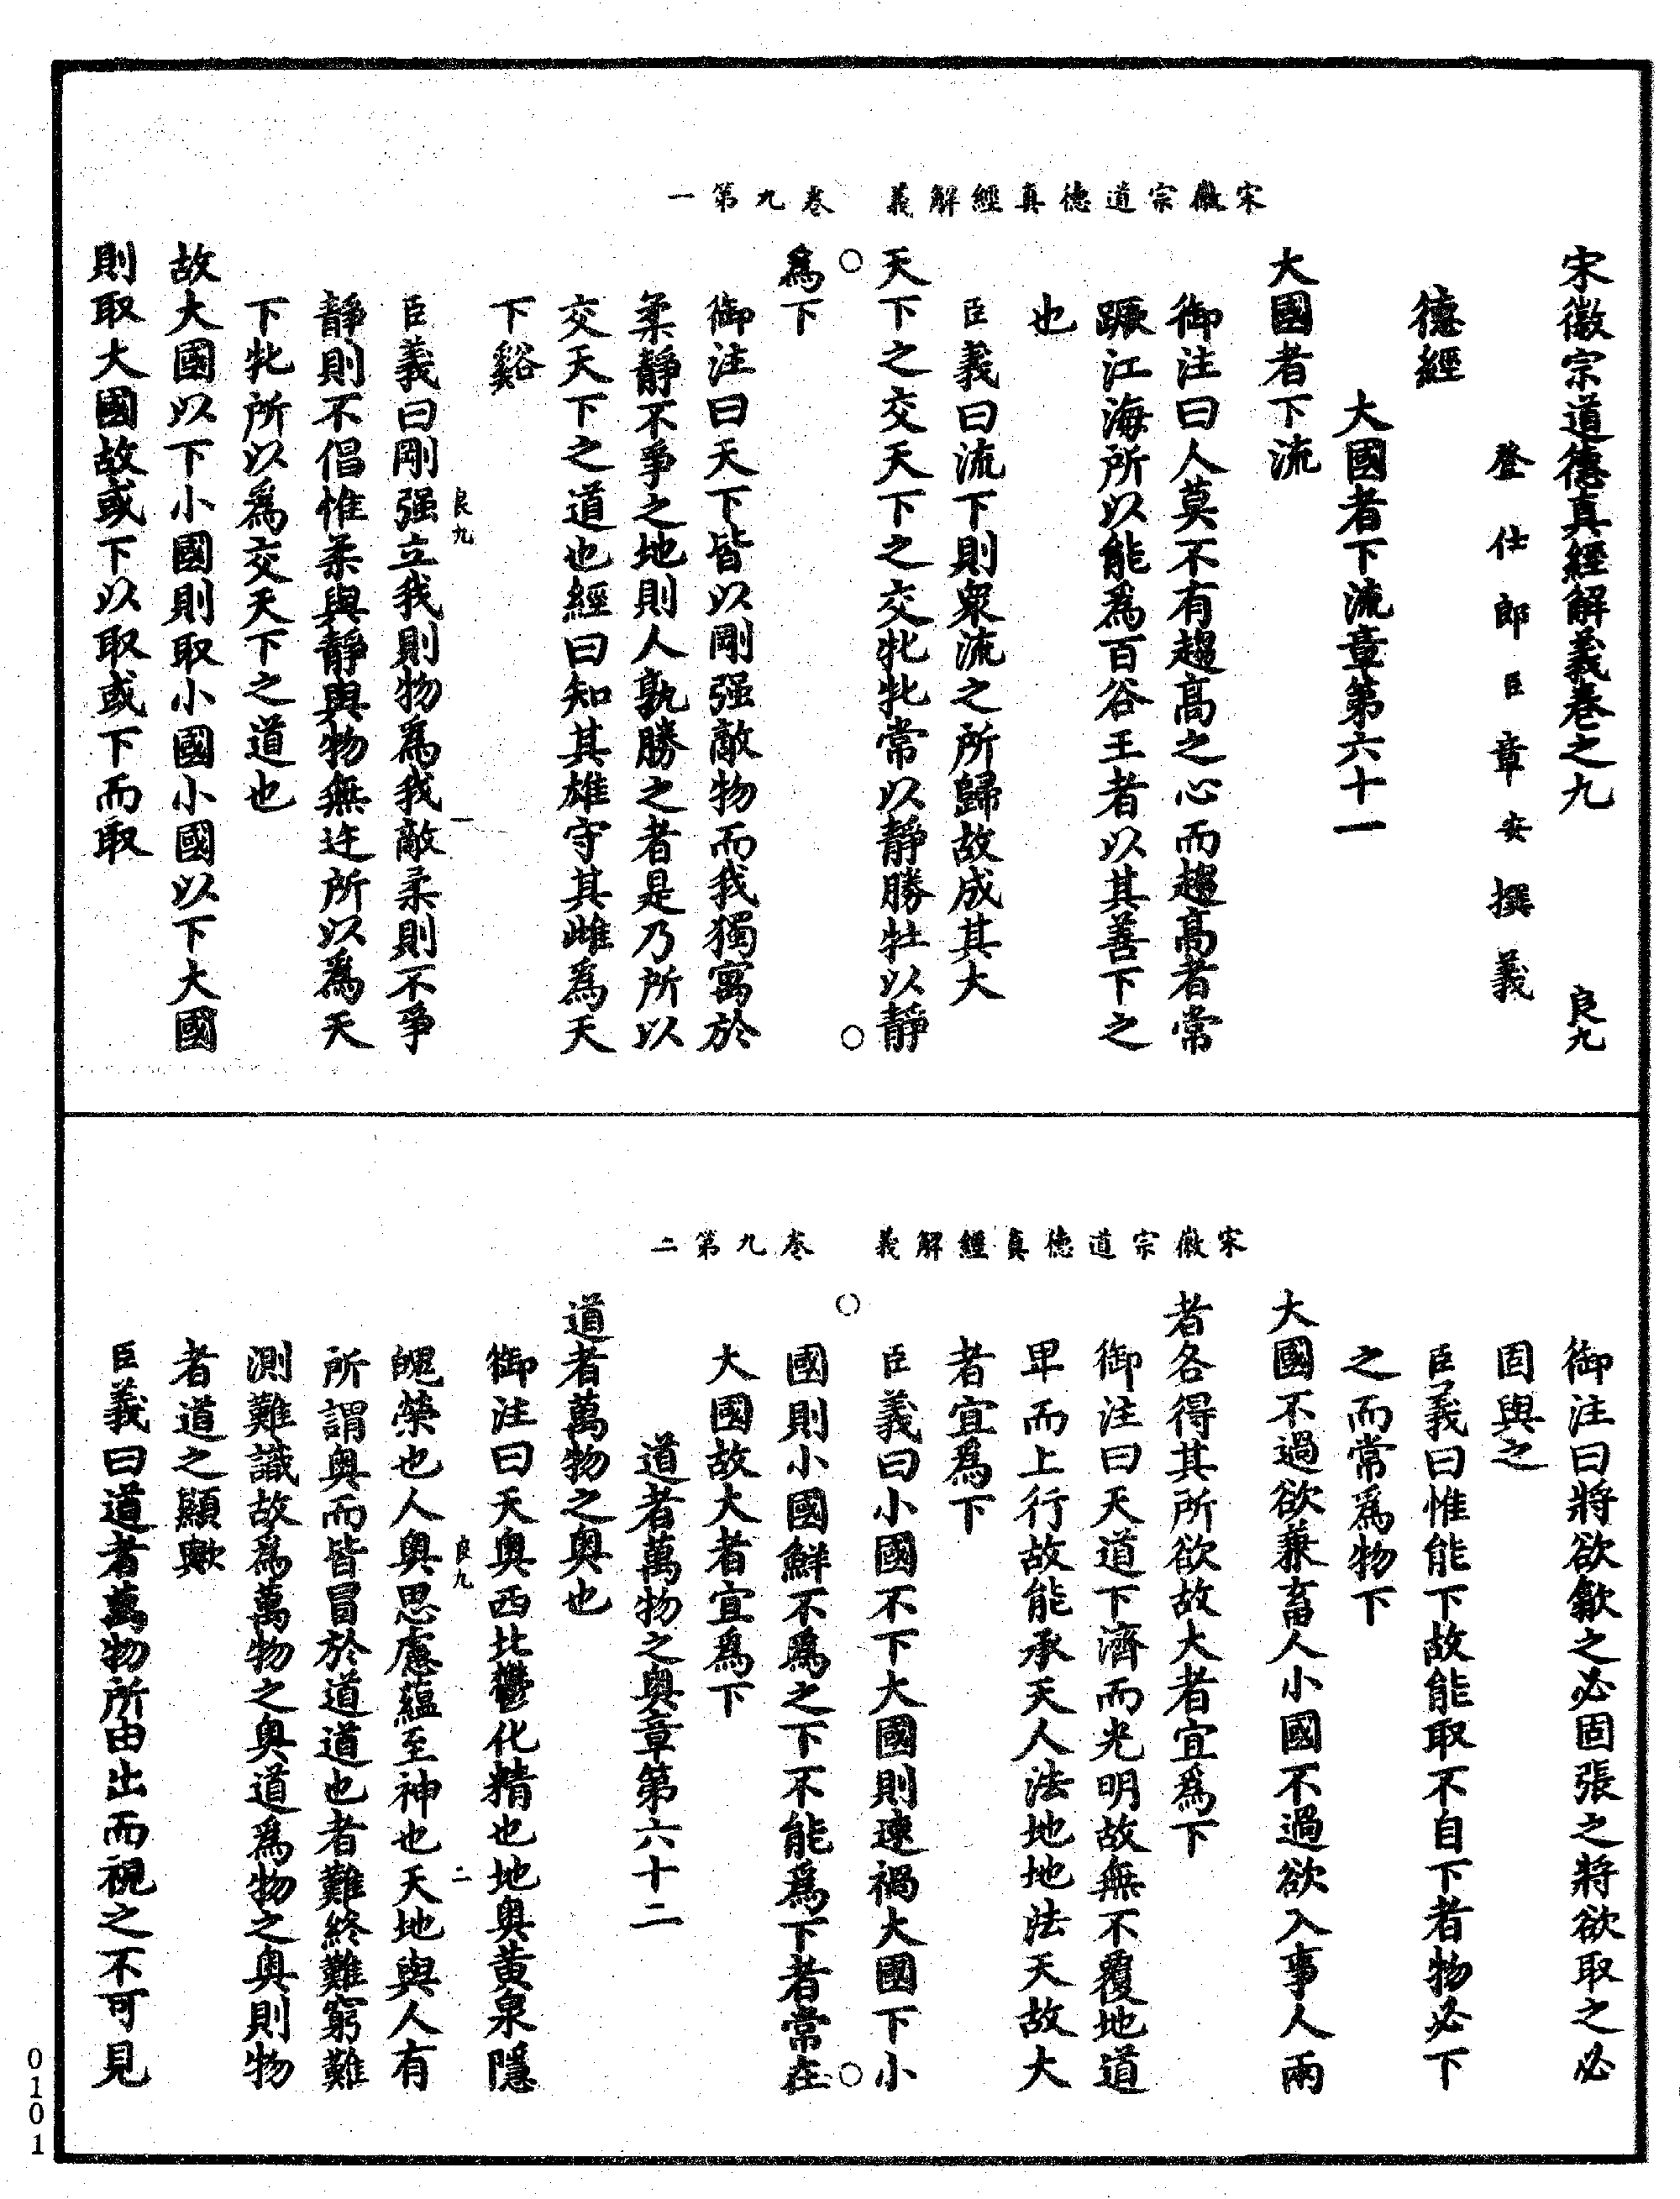 宋徽宗道德真經解義　卷九第一
宋徽宗道德真經解義卷之九　良九
登仕郎臣章安撰義
德經
大國者下流章第六十一
大國者下流
御注曰人莫不有趨高之心而趨高者常
蹶江海所以能為百谷王者以其善下之
也
臣義曰流下則衆流之所歸故成其大
天下之交天下之交牝牝常以靜勝牡以靜
爲下
御注曰天下皆以剛强敵物而我獨寓於
柔靜不爭之地則人孰勝之者是乃所以
交天下之道也經曰知其雄守其雌爲天
下谿
良九　一
臣義曰剛强立我則物爲我敵柔則不爭
靜則不倡惟柔與靜與物無迕所以爲天
下牝所以爲交天下之道也
故大國以下小國則取小國小國以下大國
則取大國故或下以取或下而取
宋徽宗道德真經解義　卷九第二
御注曰將欲歙之必固張之將欲取之必
固與之
臣義曰惟能下故能取不自下者物必下
之而常爲物下
大國不過欲兼畜人小國不過欲入事人兩
者各得其所欲故大者宜爲下
御注曰天道下濟而光明故無不覆地道
卑而上行故能承天人法地地法天故大
者宜爲下
臣義曰小國不下大國則速禍大國下小
國則小國鮮不爲之下不能爲下者常在
大國故大者宜爲下
道者萬物之奥章第六十二
道者萬物之奥也
御注曰天奥西北鬱化精也地奥黄泉隱
良九　二
魄榮也人奥思慮蘊至神也天地與人有
所謂奥而皆冒於道道也者難終難窮難
測難識故爲萬物之奥道爲物之奥則物
者道之顯歟
臣義曰道者萬物所由出而視之不可見
0101